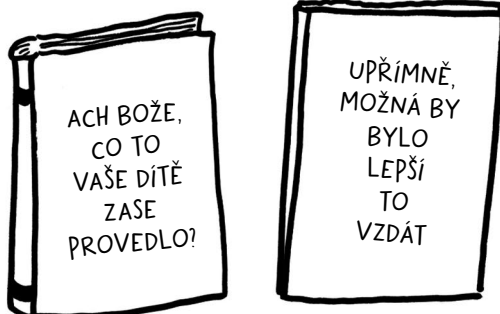 ACH BOŽE,
CO TO
VAŠE DÍTĚ
ZASE
PROVEDLO?
UPŘÍMNĚ,
MOŽNÁ BY
BYLO
LEPŠÍ
TO
VZDÁT